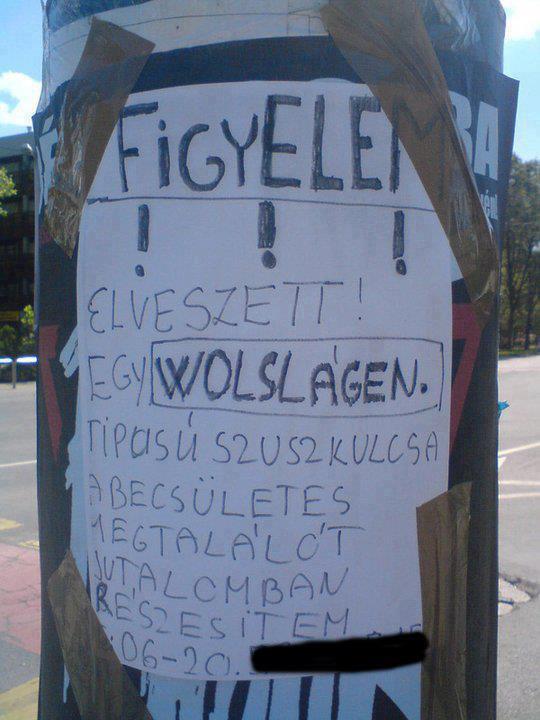 FIGYELEM
! ! !
ELVESZETT!
EGY WOLSLÁGEN.
TIPUSÚ SZUSZKULCSA
A BECSÜLETES
MEGTALÁLÓT
JUTALOMBAN
RÉSZESÍTEM
:06-20.